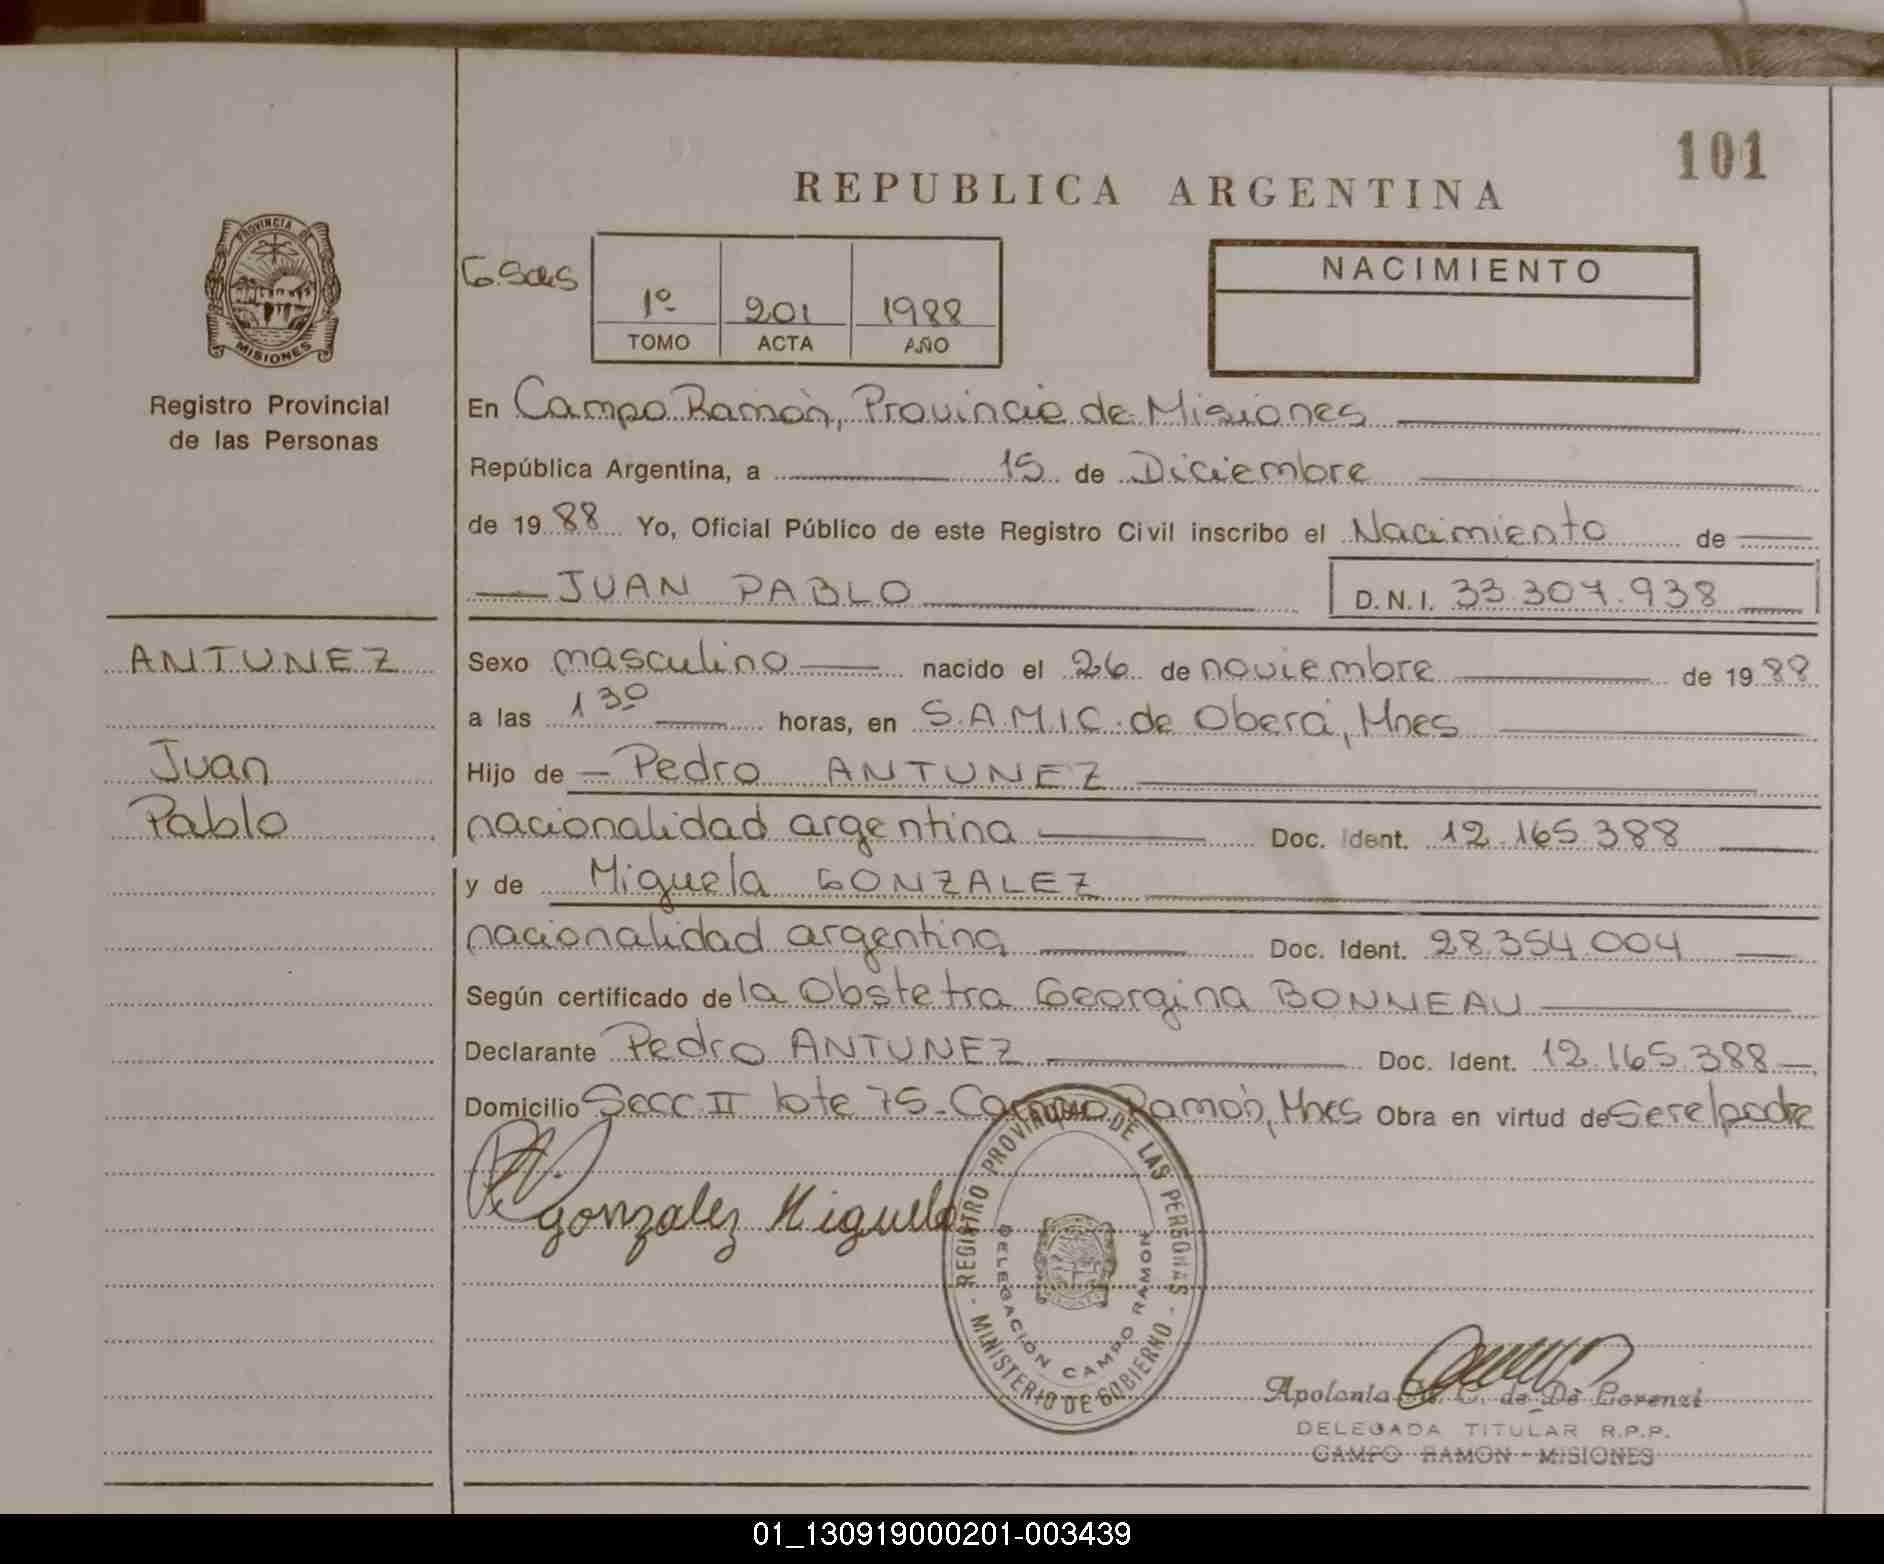 101
REPUBLICA ARGENTINA
PROVINCIA DE
MISIONES
Registro Provincial
de las Personas
1º 201 1988
TOMO ACTA AÑO
NACIMIENTO
En Campo Ramón, Provincia de Misiones
República Argentina, a 15 de Diciembre
de 1988 Yo, Oficial Público de este Registro Civil inscribo el Nacimiento de
JUAN PABLO D.N.I. 33.307.938
ANTUNEZ
Juan
Pablo
Sexo masculino nacido el 26 de noviembre de 1988
a las 1 30 horas, en S.A.M.I.C. de Oberá, Mnes
Hijo de Pedro ANTUNEZ
nacionalidad argentina Doc. Ident. 12.165.388
y de Miguela GONZALEZ
nacionalidad argentina Doc. Ident. 28.354.004
Según certificado de la Obstetra Georgina BONNEAU
Declarante Pedro ANTUNEZ Doc. Ident. 12.165.388
Domicilio Secc II lote 75-Campo Ramón, Mnes Obra en virtud de ser el padre
Gonzalez Miguela
REGISTRO PROVINCIAL DE LAS PERSONAS
- MINISTERIO DE GOBIERNO -
DELEGACIÓN CAMPO RAMON
Apolonia C. de De Lorenzi
DELEGADA TITULAR R.P.P.
CAMPO RAMON - MISIONES
01_130919000201-003439